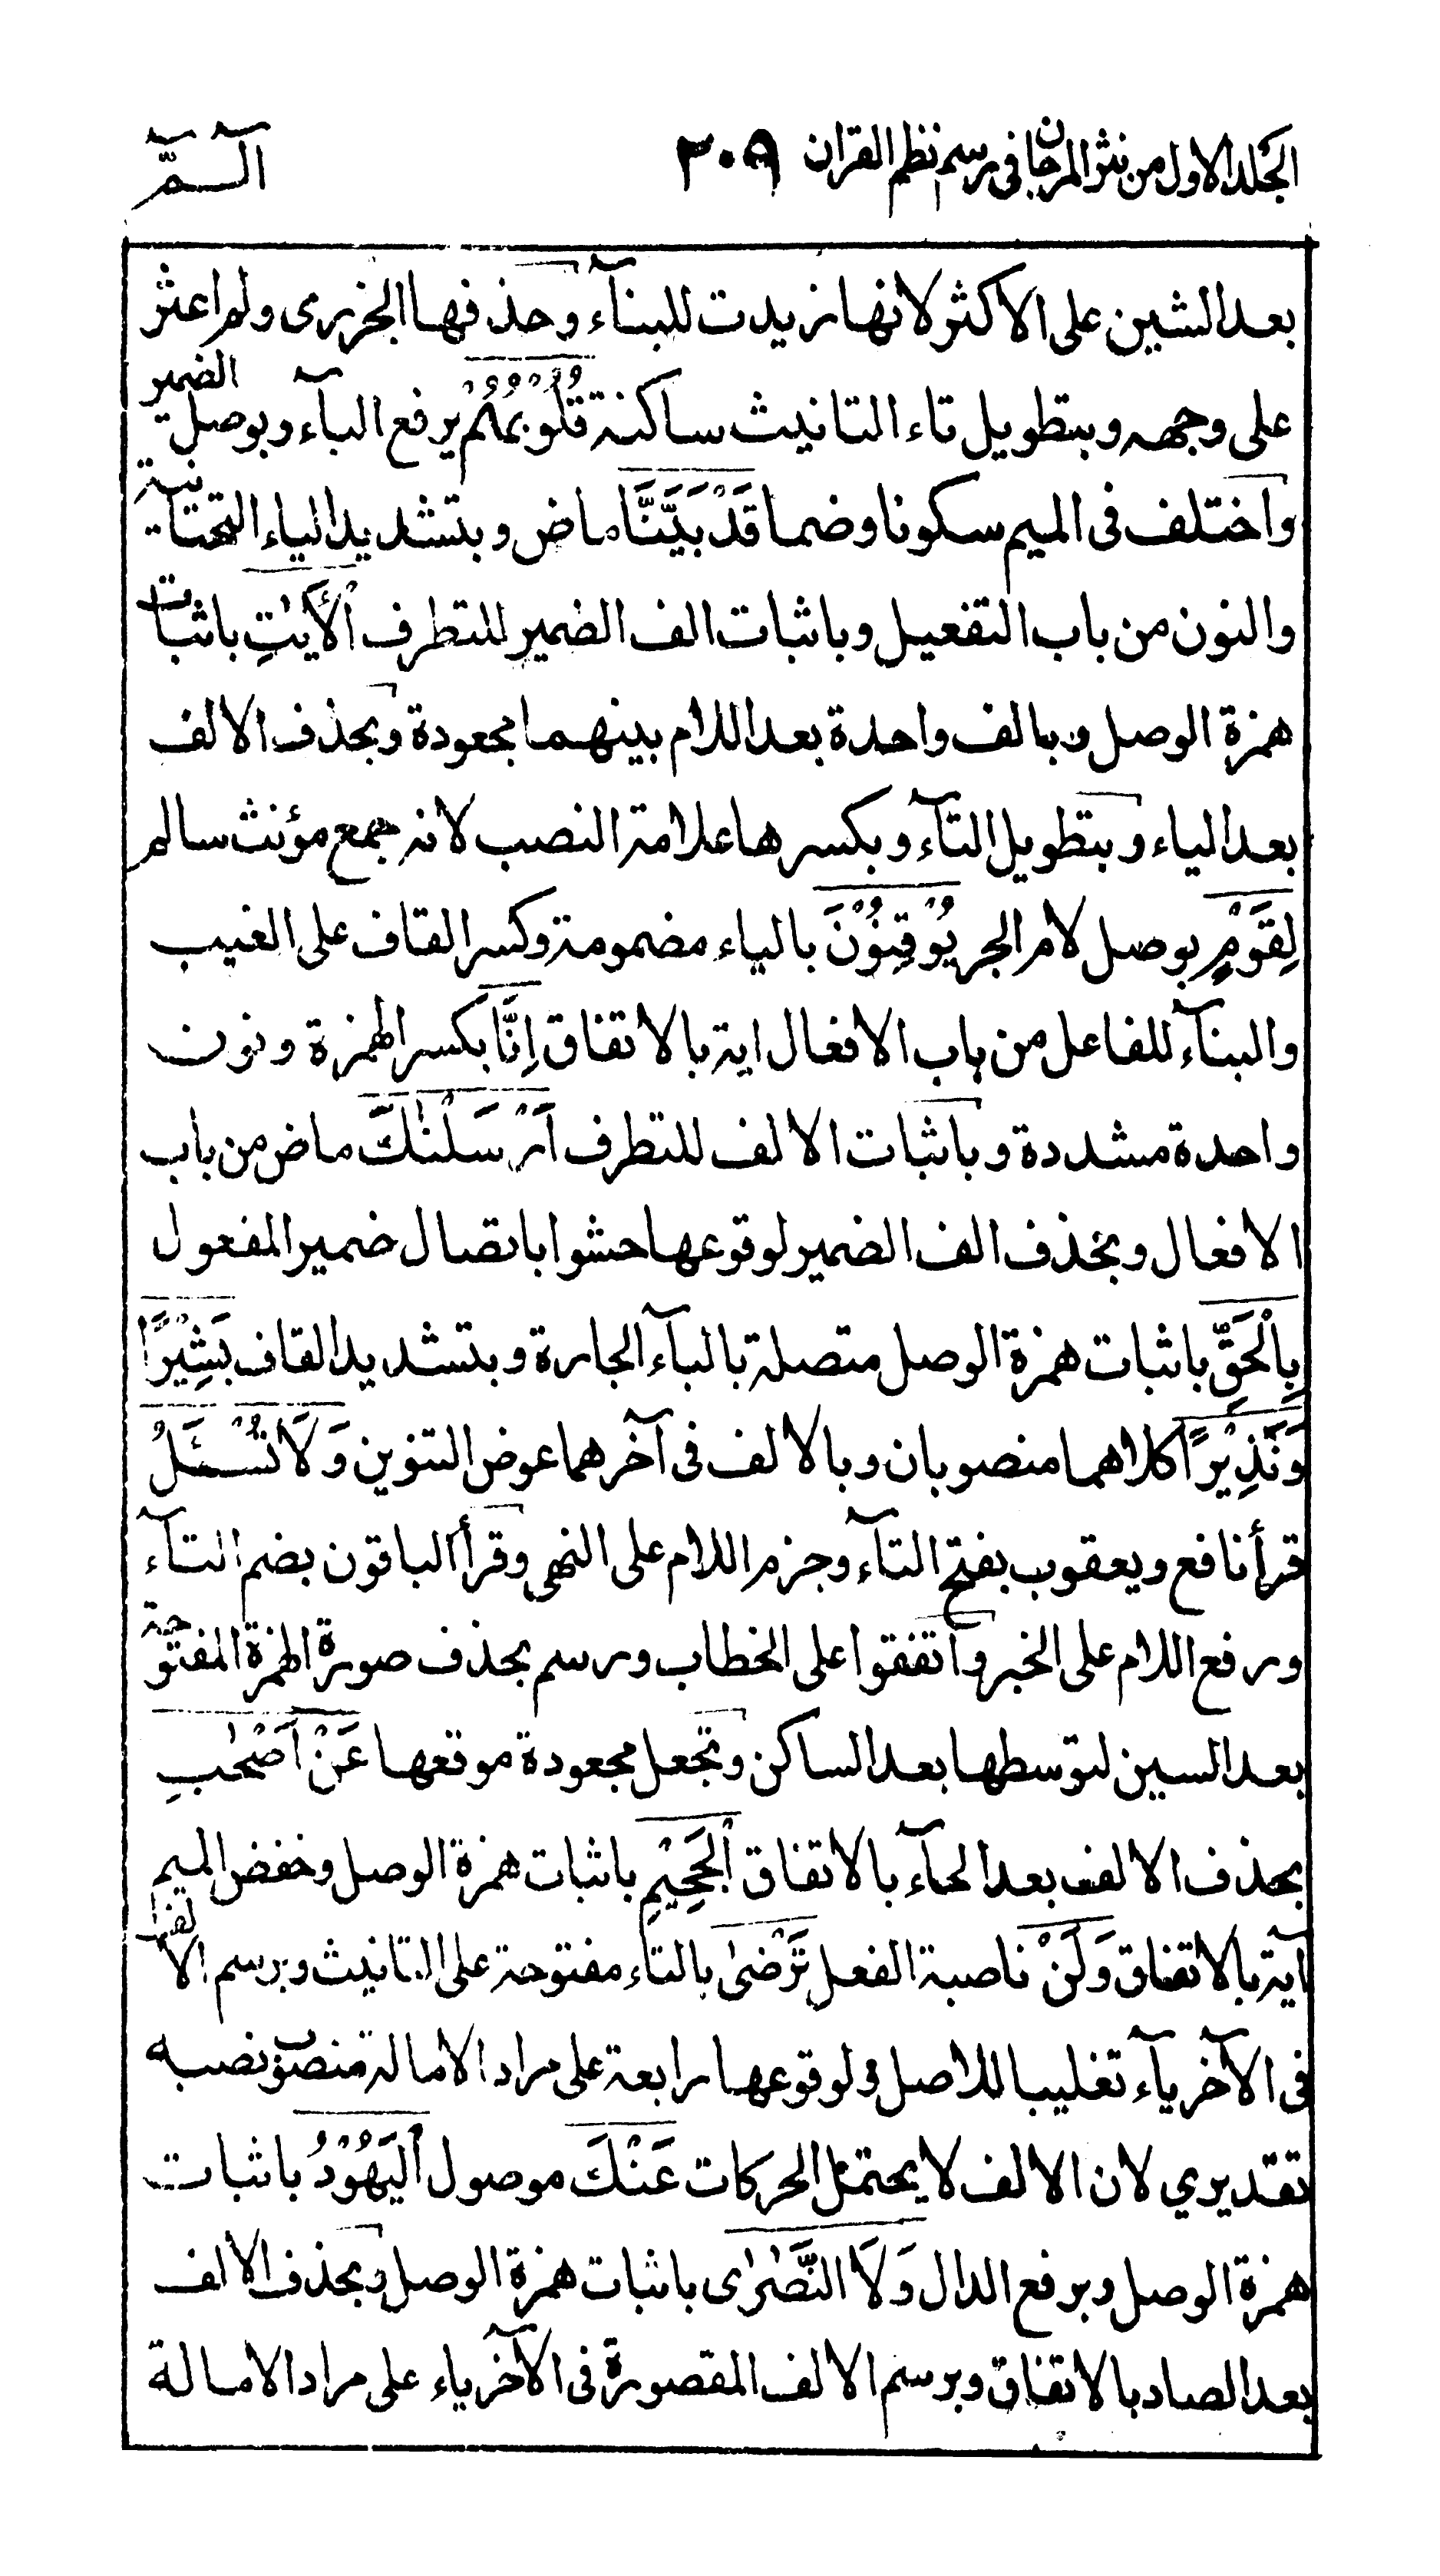 الجلد الاول من نثر المرجان فى رسم نظم القران ٣٠٩ الٓـمّٓ
بعد الشين على الاكثر لانها زيدت للبنآء وحذفها الجزرى ولم اعثر
على وجهه وبتطويل تاء التانيث ساكنة قُلُوْبُهُمْ برفع البآء وبوصل الضمير
واختلف فى الميم سكونا وضما قَدْ بَيَّنَّا ماض وبتشديد الياء التحتانية
والنون من باب التفعيل وباثبات الف الضمير للتطرف اْلأَيٰتِ باثبات
همزة الوصل وبالف واحدة بعد اللام بينهما مجعودة وبحذف الالف
بعد الياء وبتطويل التآء وبكسرها علامة النصب لانه جمع مؤنث سالم
لِقَوْمٍ بوصل لام الجر يُوْقِنُوْنَ بالياء مضمومة وكسر القاف على الغيب
والبنآء للفاعل من باب الافعال اية بالاتفاق اِنَّا بكسر الهمزة ونون
واحدة مشددة وباثبات الالف للتطرف اَرْسَلْنٰكَ ماض من باب
الافعال وبحذف الف الضمير لوقوعها حشوا باتصال ضمير المفعول
بِالْحَقِّ باثبات همزة الوصل متصلة بالبآء الجارة وبتشديد القاف بَشِيْرًا
وَّنَذِيْرًا كلاهما منصوبان وبالالف فى آخرهما عوض التنوين وَلَا تُسْـَٔلُ
قرأ نافع ويعقوب بفتح التآء وجزم اللام على النهى وقرأ الباقون بضم التآء
ورفع اللام على الخبر واتفقوا على الخطاب ورسم بحذف صورة الهمزة المفتوحة
بعد السين لتوسطها بعد الساكن وتجعل مجعودة موقعها عَنْ اَصْحٰبِ
بحذف الالف بعد الحآء بالاتفاق اْلجَحِيْمِ باثبات همزة الوصل وخفض الميم
آية بالاتفاق وَلَنْ ناصبة الفعل تَرْضىٰ بالتاء مفتوحة على التانيث وبرسم الالف
فى الآخر يآء تغليبا للاصل ولوقوعها رابعة على مراد الامالة منصوب نصبه
تقديري لان الالف لا يحتمل الحركات عَنْكَ موصول اْليَهُوْدُ باثبات
همزة الوصل وبرفع الدال وَلَا النَّصٰرٰى باثبات همزة الوصل وبحذف الالف
بعد الصاد بالاتفاق وبرسم الالف المقصورة فى الآخر ياء على مراد الامالة